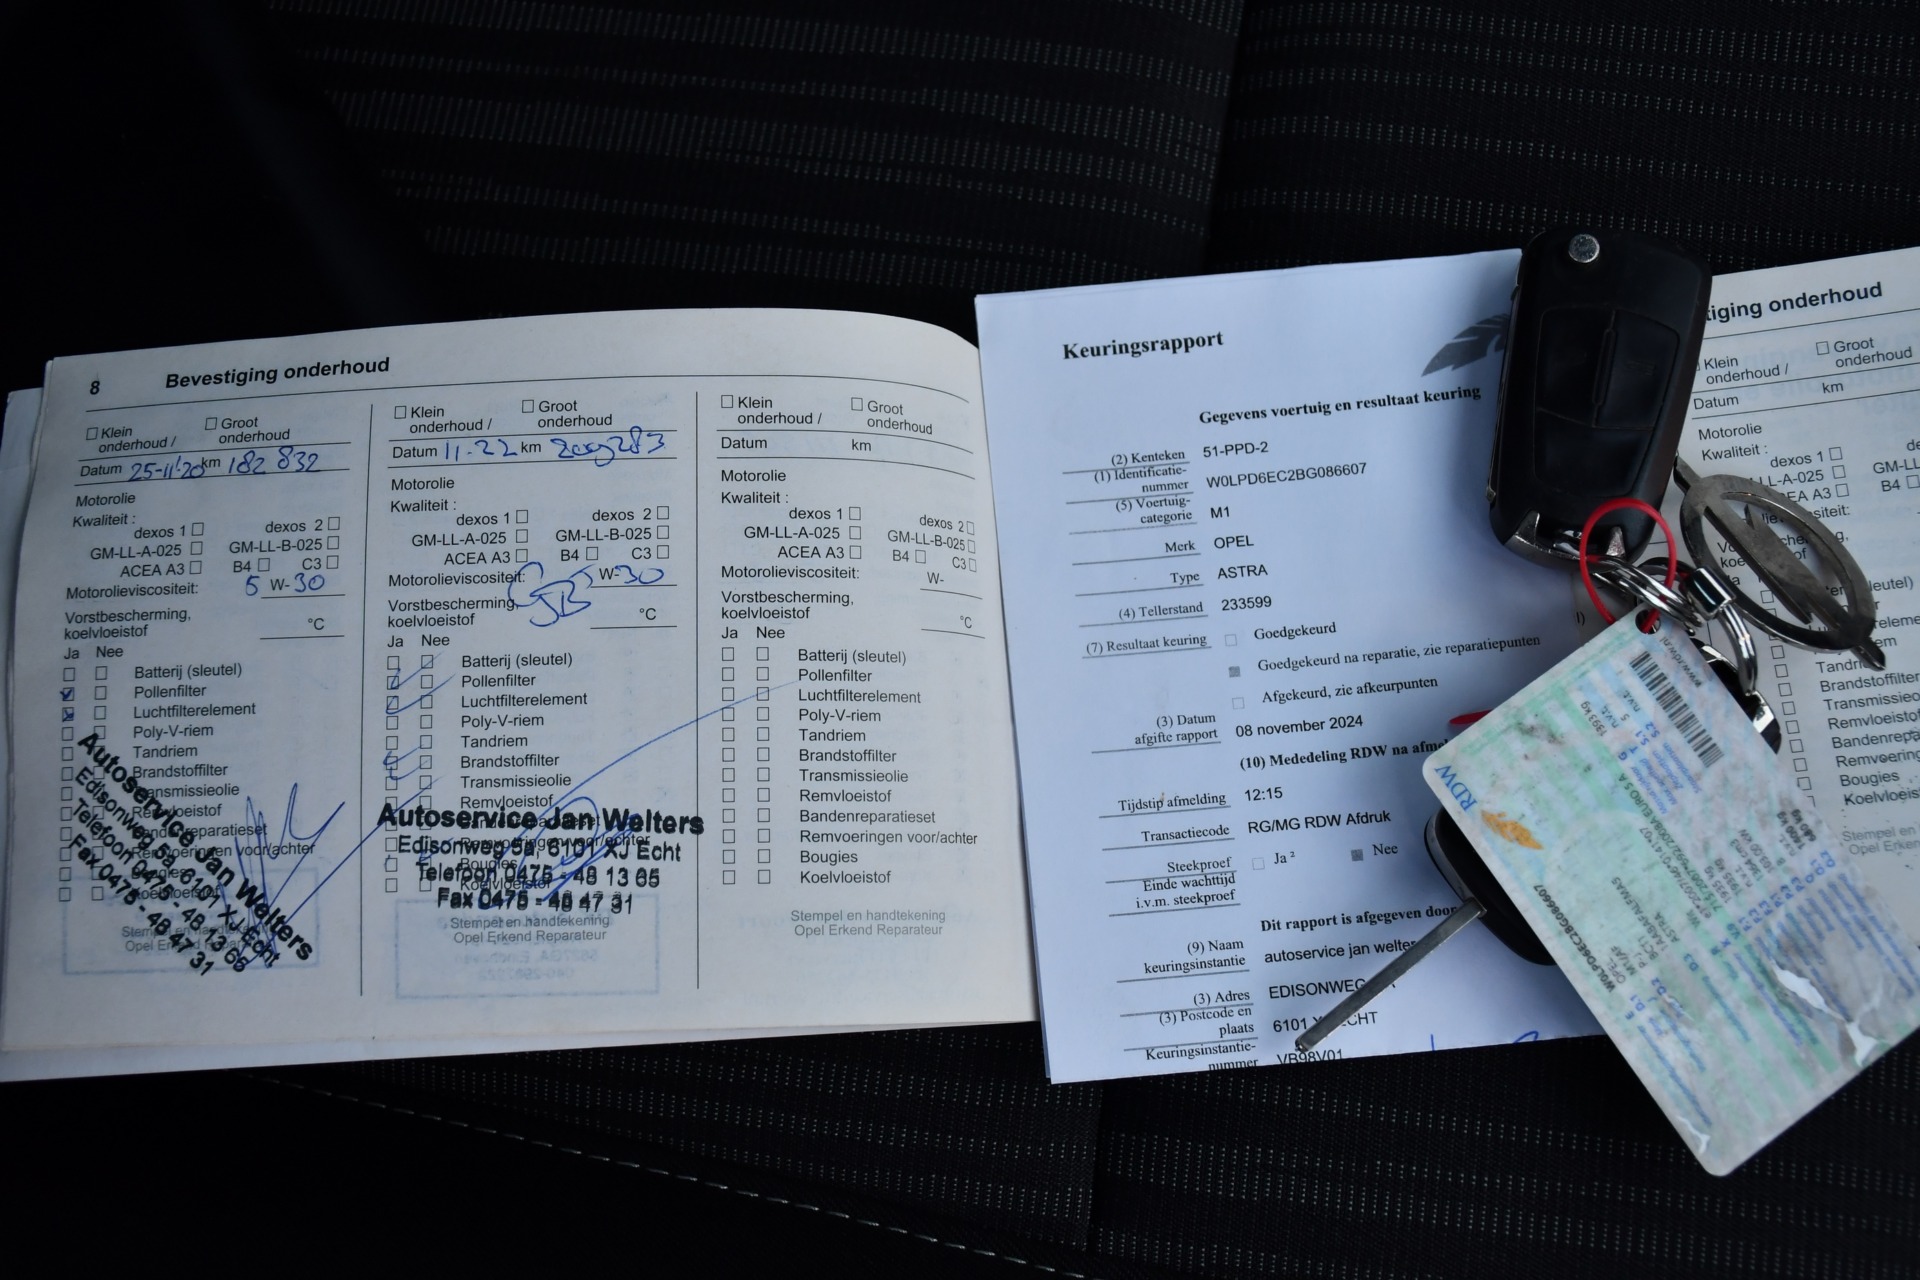 8 Bevestiging onderhoud
Klein onderhoud / Groot onderhoud
Datum 25-11-'20 km 182 832
Motorolie
Kwaliteit :
dexos 1 dexos 2
GM-LL-A-025 GM-LL-B-025
ACEA A3 B4 C3
Motorolieviscositeit: 5 W-30
Vorstbescherming,
koelvloeistof °C
Ja Nee
Batterij (sleutel)
Pollenfilter
Luchtfilterelement
Poly-V-riem
Tandriem
Brandstoffilter
Transmissieolie
Remvloeistof
Bandenreparatieset
Remvoeringen voor/achter
Bougies
Koelvloeistof
Autoservice Jan Welters
Edisonweg 5a, 6101 XJ Echt
Telefoon 0475 - 48 13 65
Fax 0475 - 48 47 31
Stempel en handtekening
Opel Erkend Reparateur
Klein onderhoud / Groot onderhoud
Datum 11-22 km
Motorolie
Kwaliteit :
dexos 1 dexos 2
GM-LL-A-025 GM-LL-B-025
ACEA A3 B4 C3
Motorolieviscositeit: W-30
Vorstbescherming,
koelvloeistof °C
Ja Nee
Batterij (sleutel)
Pollenfilter
Luchtfilterelement
Poly-V-riem
Tandriem
Brandstoffilter
Transmissieolie
Remvloeistof
Bandenreparatieset
Remvoeringen voor/achter
Bougies
Koelvloeistof
Autoservice Jan Welters
Edisonweg 5a, 6101 XJ Echt
Telefoon 0475 - 48 13 65
Fax 0475 - 48 47 31
Stempel en handtekening
Opel Erkend Reparateur
Klein onderhoud / Groot onderhoud
Datum km
Motorolie
Kwaliteit :
dexos 1 dexos 2
GM-LL-A-025 GM-LL-B-025
ACEA A3 B4 C3
Motorolieviscositeit: W-
Vorstbescherming,
koelvloeistof °C
Ja Nee
Batterij (sleutel)
Pollenfilter
Luchtfilterelement
Poly-V-riem
Tandriem
Brandstoffilter
Transmissieolie
Remvloeistof
Bandenreparatieset
Remvoeringen voor/achter
Bougies
Koelvloeistof
Stempel en handtekening
Opel Erkend Reparateur
Keuringsrapport
Gegevens voertuig en resultaat keuring
(2) Kenteken 51-PPD-2
(1) Identificatie-
nummer W0LPD6EC2BG086607
(5) Voertuig-
categorie M1
Merk OPEL
Type ASTRA
(4) Tellerstand 233599
(7) Resultaat keuring Goedgekeurd
Goedgekeurd na reparatie, zie reparatiepunten
Afgekeurd, zie afkeurpunten
(3) Datum
afgifte rapport 08 november 2024
(10) Mededeling RDW na afme
Tijdstip afmelding 12:15
Transactiecode RG/MG RDW Afdruk
Steekproef Ja ² Nee
Einde wachttijd
i.v.m. steekproef
Dit rapport is afgegeven door
(9) Naam
keuringsinstantie autoservice jan welter
(3) Adres EDISONWEG
(3) Postcode en
plaats 6101 ECHT
Keuringsinstantie-
nummer VB98V01
RDW
www.rdw.nl
W0LPD6EC2BG086607
OPEL
ASTRA
tiging onderhoud
Klein onderhoud / Groot onderhoud
Datum km
Motorolie
Kwaliteit :
dexos 1
LL-A-025 GM-L
EA A3 B4
Tandri
Brandstoffilter
Transmissieo
Remvloeisto
Bandenrepa
Remvoering
Bougies
Koelvloeis
Stempel en
Opel Erken